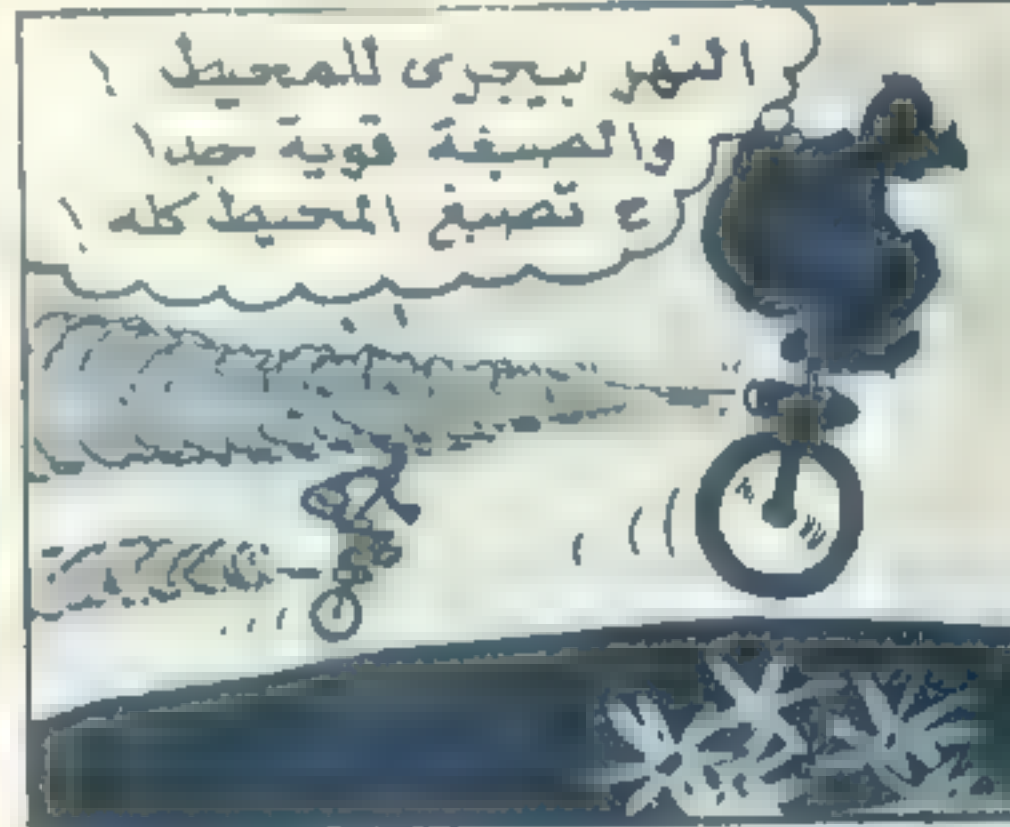 النهر بيجرى للمحيط !
والصبغة قوية جدا
ح تصبغ المحيط كله !